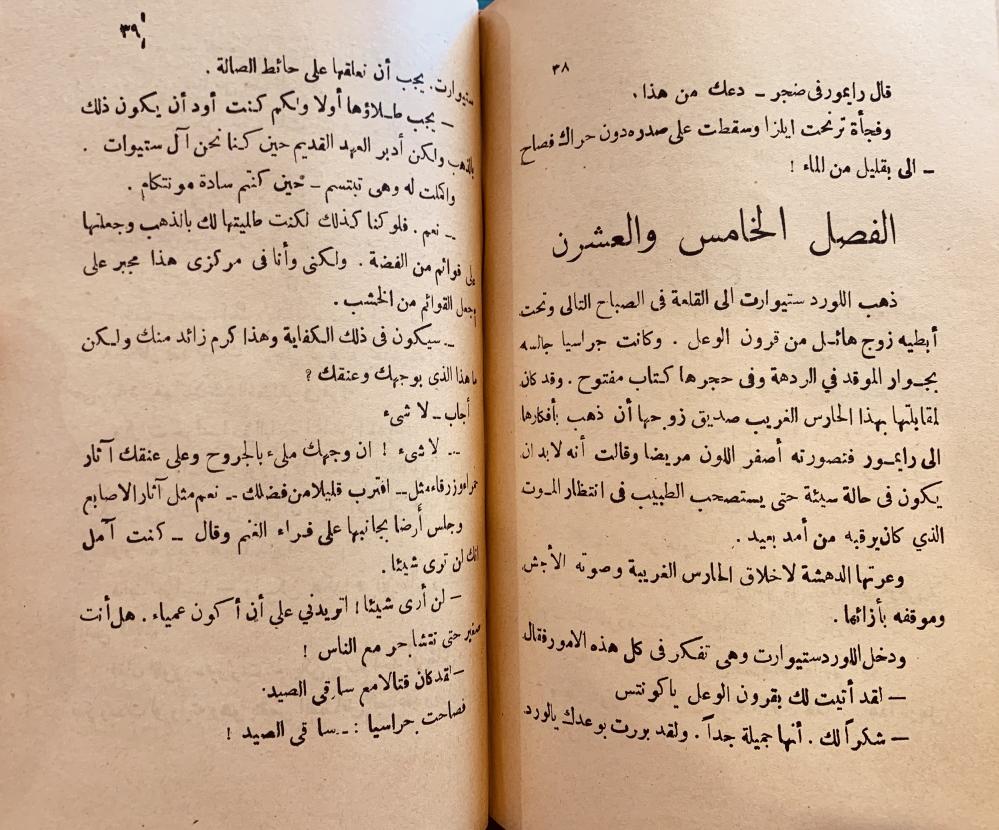 ٣٨
قال رايمور فى ضجر – دعك من هذا .
وفجأة ترنحت ايلزا وسقطت على صدره دون حراك فصاح
– الى بقليل من الماء !
الفصل الخامس والعشرن
ذهب اللورد ستيوارت الى القلعة فى الصباح التالى وتحت
أبطيه زوج هائل من قرون الوعل . وكانت جراسيا جالسه
بجوار الموقد في الردهة وفى حجرها كتاب مفتوح . وقد كان
لمقابلتها بهذا الحارس الغريب صديق زوجها أن ذهب بأفكارها
الى رايمور فتصورته أصفر اللون مريضا وقالت أنه لابد ان
يكون فى حالة سيئة حتى يستصحب الطبيب فى انتظار الموت
الذي كان يرقبه من أمد بعيد .
وعرتها الدهشة لاخلاق الحارس الغريبة وصوته الأجش
وموقفه بأزائها .
ودخل اللورد ستيوارت وهى تفكر فى كل هذه الامور فقال
– لقد أتيت لك بقرون الوعل ياكونتس
– شكراً لك . أنها جميلة جداً . ولقد بررت بوعدك يالورد
٣٩
ستيوارت. يجب أن نعلقها على حائط الصالة .
– يجب طلاؤها أولا ولكم كنت أود أن يكون ذلك
بالذهب ولكن أدبر العهد القديم حين كنا نحن آل ستيوات .
واكملت له وهى تبتسم – حين كنتم سادة مونتكام .
– نعم . فلو كنا كذلك لكنت طليتها لك بالذهب وجعلتها
على قوائم من الفضة . ولكنى وأنا فى مركزى هذا مجبر على
جعل القوائم من الخشب .
– سيكون فى ذلك الكفاية وهذا كرم زائد منك ولكن
ما هذا الذى بوجهك وعنقك ؟
أجاب – لا شىء
– لا شىء ! ان وجهك ملىء بالجروح وعلى عنقك آثار
حمراء وزرقاء مثل – اقترب قليلا من فضلك – نعم مثل آثار الاصابع
وجلس أرضا بجانبها على فراء الغنم وقال – كنت آمل
انك لن ترى شيئا .
– لن أرى شيئا ! اتريدني على أن أكون عمياء . هل أنت
صغير حتى تتشاجر مع الناس !
– لقد كان قتالا مع سارقى الصيد .
فصاحت جراسيا : – سارقى الصيد !